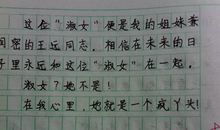 这位"淑女"便是我的姐妹兼
闺密的王远同志。相信在未来的日
子里永远和这位"淑女"在一起。
淑女?她不是!
在我心里,她就是一个疯丫头!